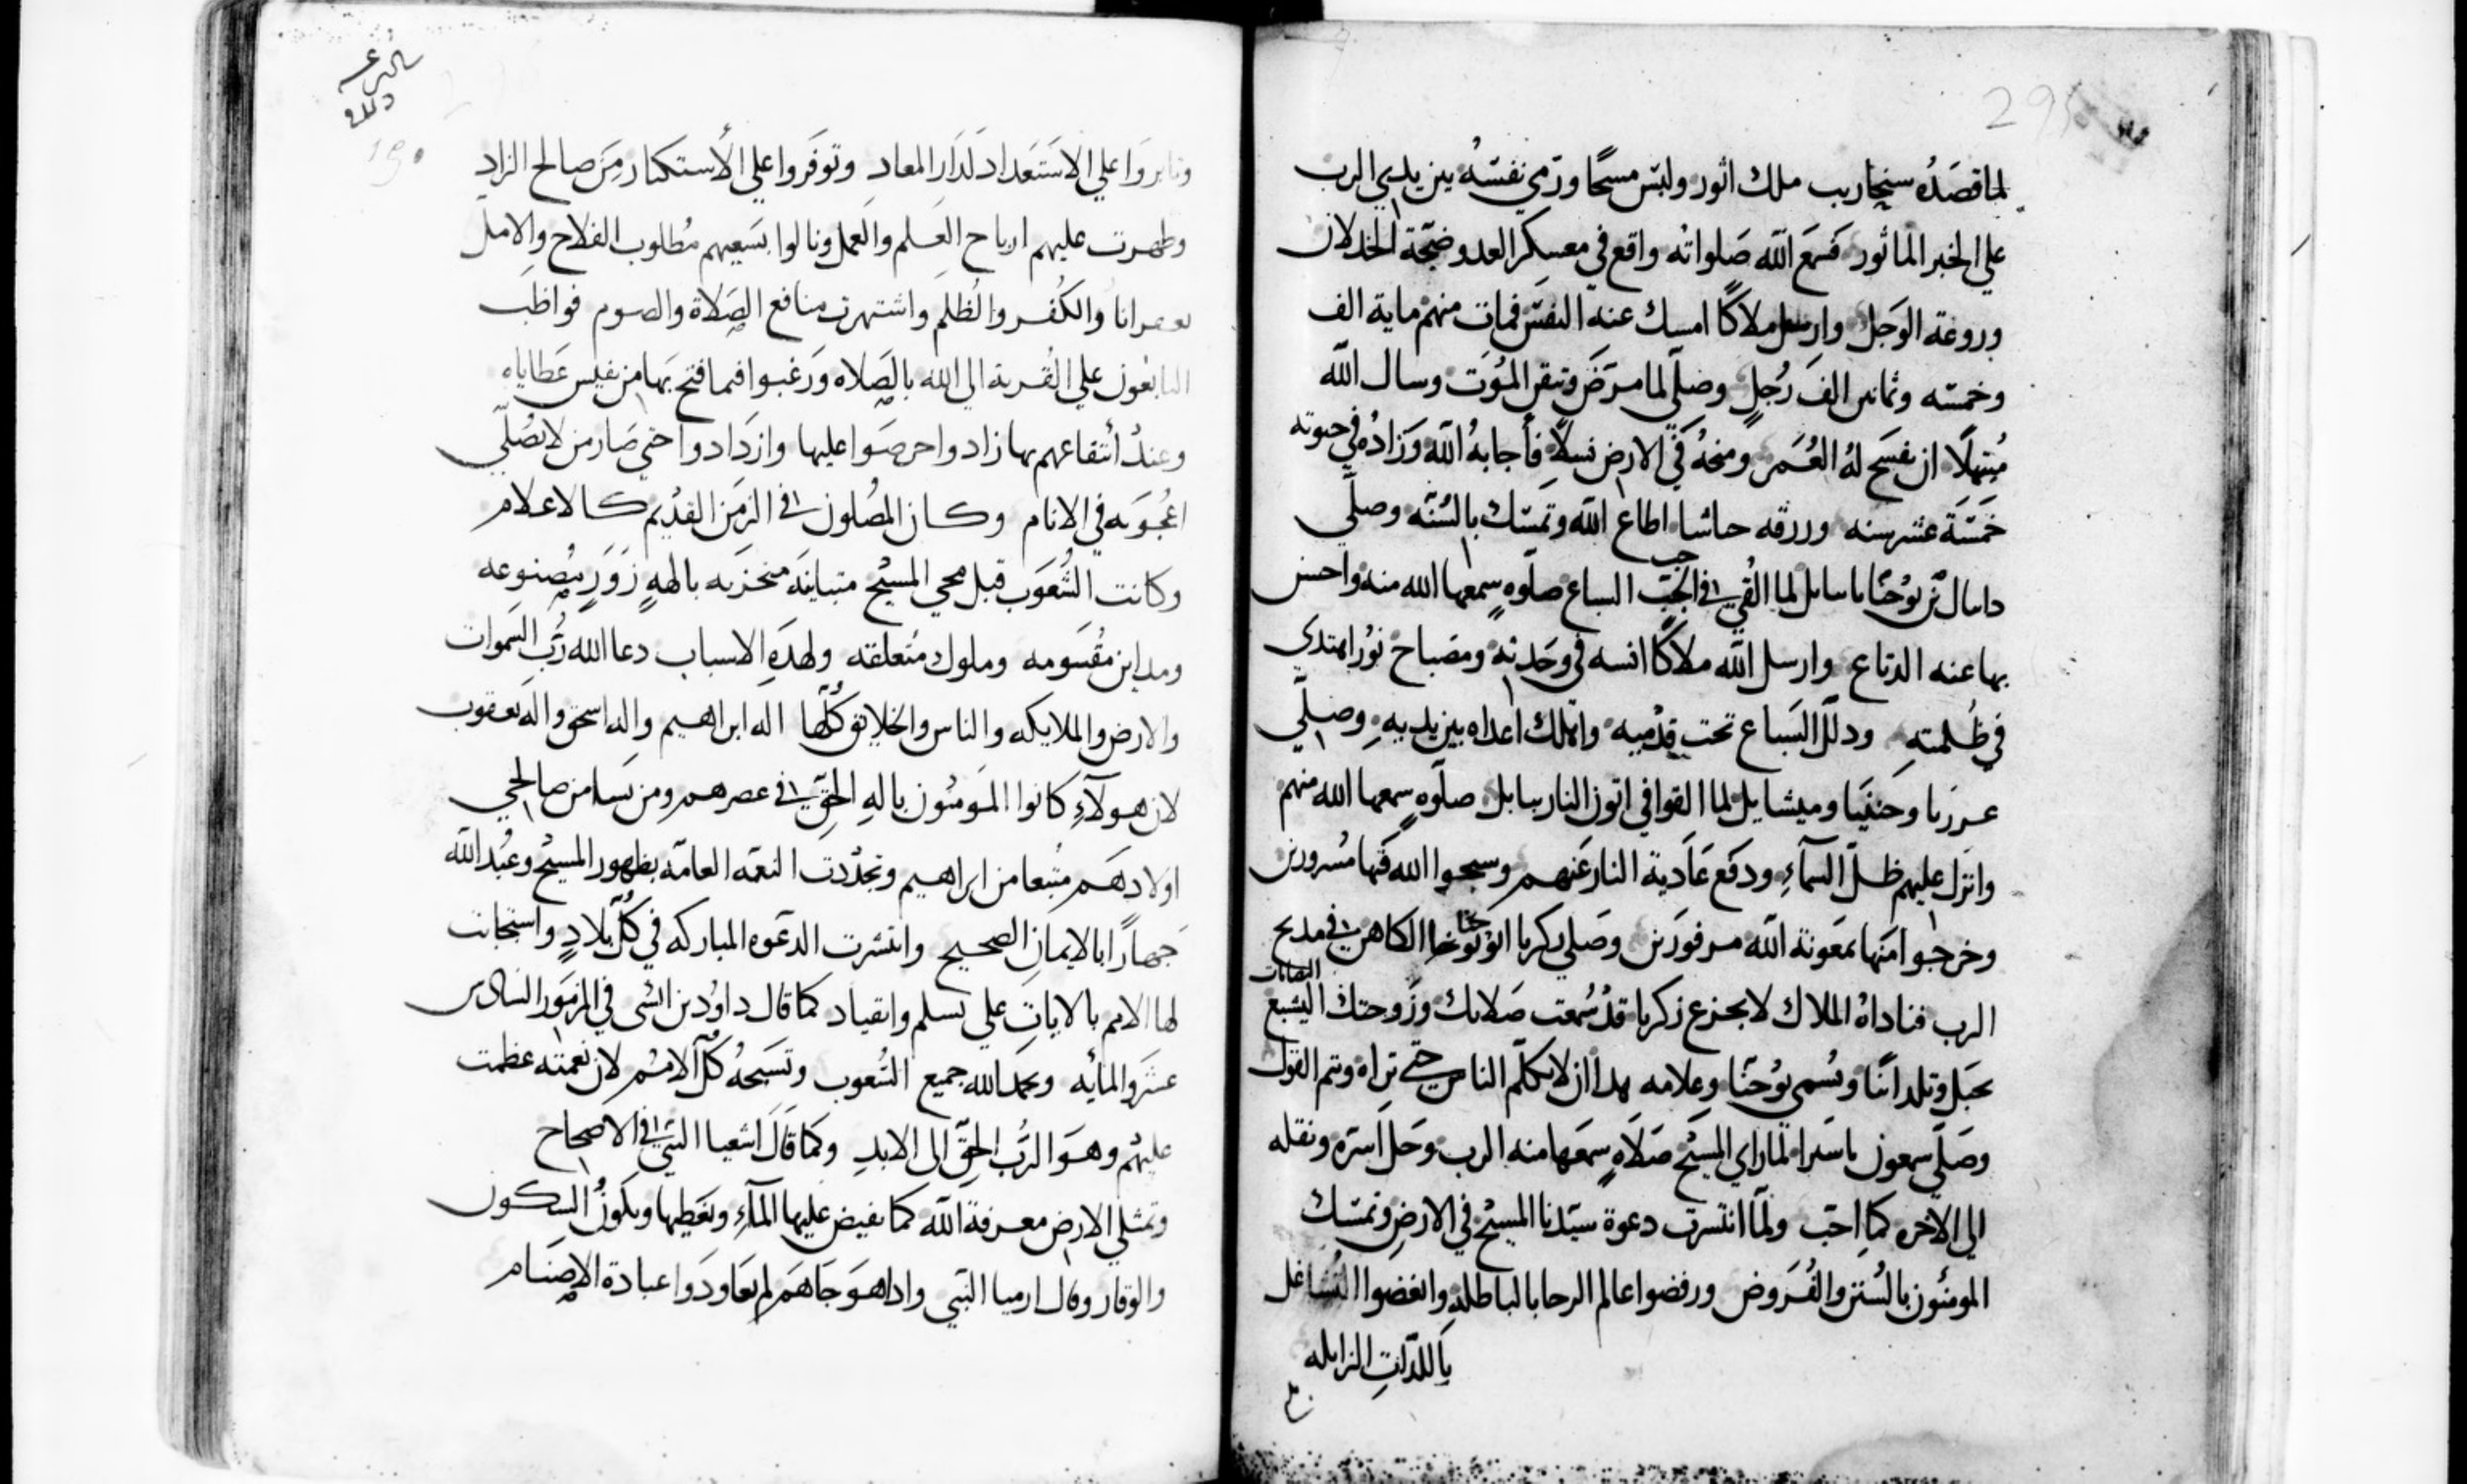 295
لما قصده سنحاريب ملك اثور ولبس مسحًا ورمي نفسه بين يدي الرب
علي الخبر الماثور فسمع الله صلواته واقع في معسكر العدو ضجة الخدلان
وروعة الوجل وارسل ملاكًا امسك عنه النفس فمات منهم ماية الف
وخمسه وثمانين الف رجل وصلّي لما مرض وتيقن الموت وسال الله
مبتهلًا ان يفسح له العمر ومنحه في الارض نسلًا فأجابه الله وزاده في حيوته
خمسة عشر سنه ورزقه حاشا اطاع الله وتمسّك بالسنّه وصلّي
دانيال بن يوحنّا ببابل لما القي في الجب السباع صلوه سمعها الله منه واحسن
بها عنه الدفاع وارسل الله ملاكًا انسه في وحدته ومصباح نور اهتدي
في ظلمتهِ ودلّل السباع تحت قدميه واهلك اعداه بين يديهِ وصلّي
عزريا وحننيا وميشايل لما القوا في اتون النار ببابل صلوه سمعها الله منهم
وانزل عليهم ظلّ السمآءِ ودفع عادية النار عنهم وسبحوا الله فيها مسرورين
وخرجوا منها بمعونة الله موفورين وصلي زكريا ابو يوحنا الكاهن في مدبح
الرب فناداه الملاك لا تجزع زكريا قد سمعت صلاتك وزوجتك اليشبع
تحبل وتلد ابنًا ويسمي يوحنّا وعلامه هدا ان لا تكلّم الناس حتي تراه وتم القول
وصلّي سمعون لما راي المسيح صلاهٍ سمعها منه الرب وحل اسره ونقله
الي الاخره كما احب ولمّا انتشرت دعوة سيّدنا المسيح في الارض وتمسّك
المومنون بالسنن والفروض ورفضوا عالم الباطله وابغضوا التشاغل
باللدّاتِ الزايله
190
وثابروا علي الاستعداد لدار المعاد وتوفروا علي الاستكثار من صالح الزاد
وظهرت عليهم ارباح العلم والعمل ونالوا بسعيهم مطلوب الفلاح والامل
والكفر والظلم واشتهرت منافع الصلاة والصوم فواظب
التابعون علي القربة الي الله بالصلاه ورغبوا فيما فتح بها من نفيس عطاياه
وعند أنتفاعهم بها زادوا حرصوا عليها وازدادوا حتي صار من لا يصلّي
اعجوبه في الانام وكان المصلون في الزمن القديم كالاعلام
وكانت الشعوب قبل مجي المسيح متباينه متحزبه بالههٍ زورٍ مصنوعه
ومداين مقسومه وملوك متعلقه ولهدهِ الاسباب دعا الله ربّ السموات
والارض والملايكه والناس والخلايق كلّها اله ابراهيم واله اسحق واله يعقوب
لان هولآءِ كانوا المومنون بالهِ الحقّ في عصرهم ومن نسا من صالحي
اولادهم متبعا من ابراهيم وتجدّدت النعمه العامّه بظهور المسيح وعُبد الله
جهارًا بالايمان الصحيح وانتشرت الدعوه المباركه في كلّ بلادٍ واستجابت
لها الامم بالاياتِ علي تسلم وانقياد كما قال داوُد بن ايشي في المزمور السادس
عشر والمايه ويحمد الله جميع الشعوب وتسبحهُ كلّ الامم لان نعمته عظمت
عليهم وهو الرب الحقّ الى الابدِ وكما قال اشعيا النبي في الاصحاح
وتمتلي الارض معرفة الله كما يفيض عليها المآءِ وتغطيها ويكون السكون
والوقار وقال ارميا النبي وادا هو جاهم لم يعاودوا عبادة الاصنام